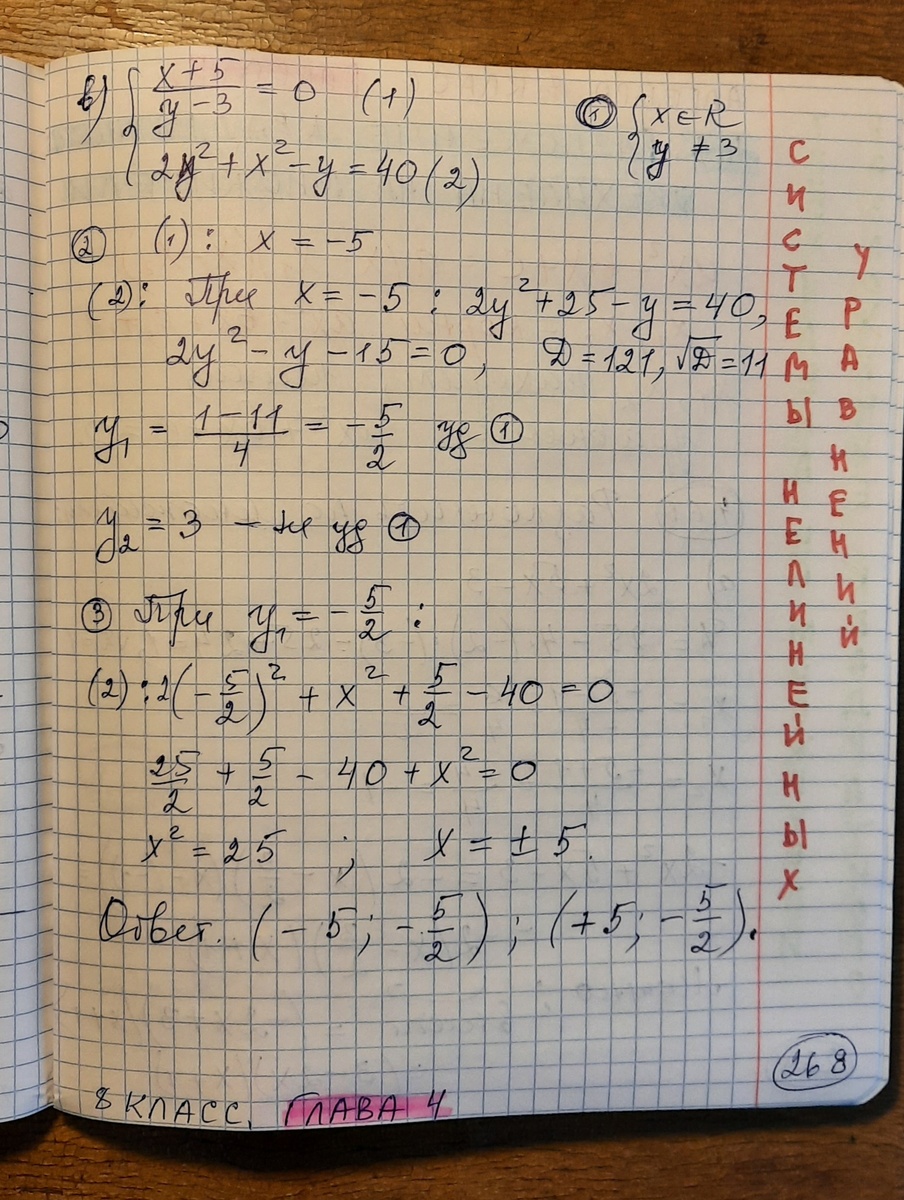 в) { (x+5)/(y-3) = 0 (1)
2y² + x² - y = 40 (2)
① { x ∈ R
y ≠ 3
② (1): x = -5
(2): При x = -5 : 2y² + 25 - y = 40,
2y² - y - 15 = 0, D = 121, √D = 11
y₁ = (1-11)/4 = -5/2 уд ①
y₂ = 3 - не уд ①
③ При y₁ = -5/2 :
(2): 2(-5/2)² + x² + 5/2 - 40 = 0
25/2 + 5/2 - 40 + x² = 0
x² = 25 ; x = ± 5.
Ответ. (-5; -5/2) ; (+5; -5/2).
СИСТЕМЫ НЕЛИНЕЙНЫХ
УРАВНЕНИЙ
268
8 КЛАСС. ГЛАВА 4